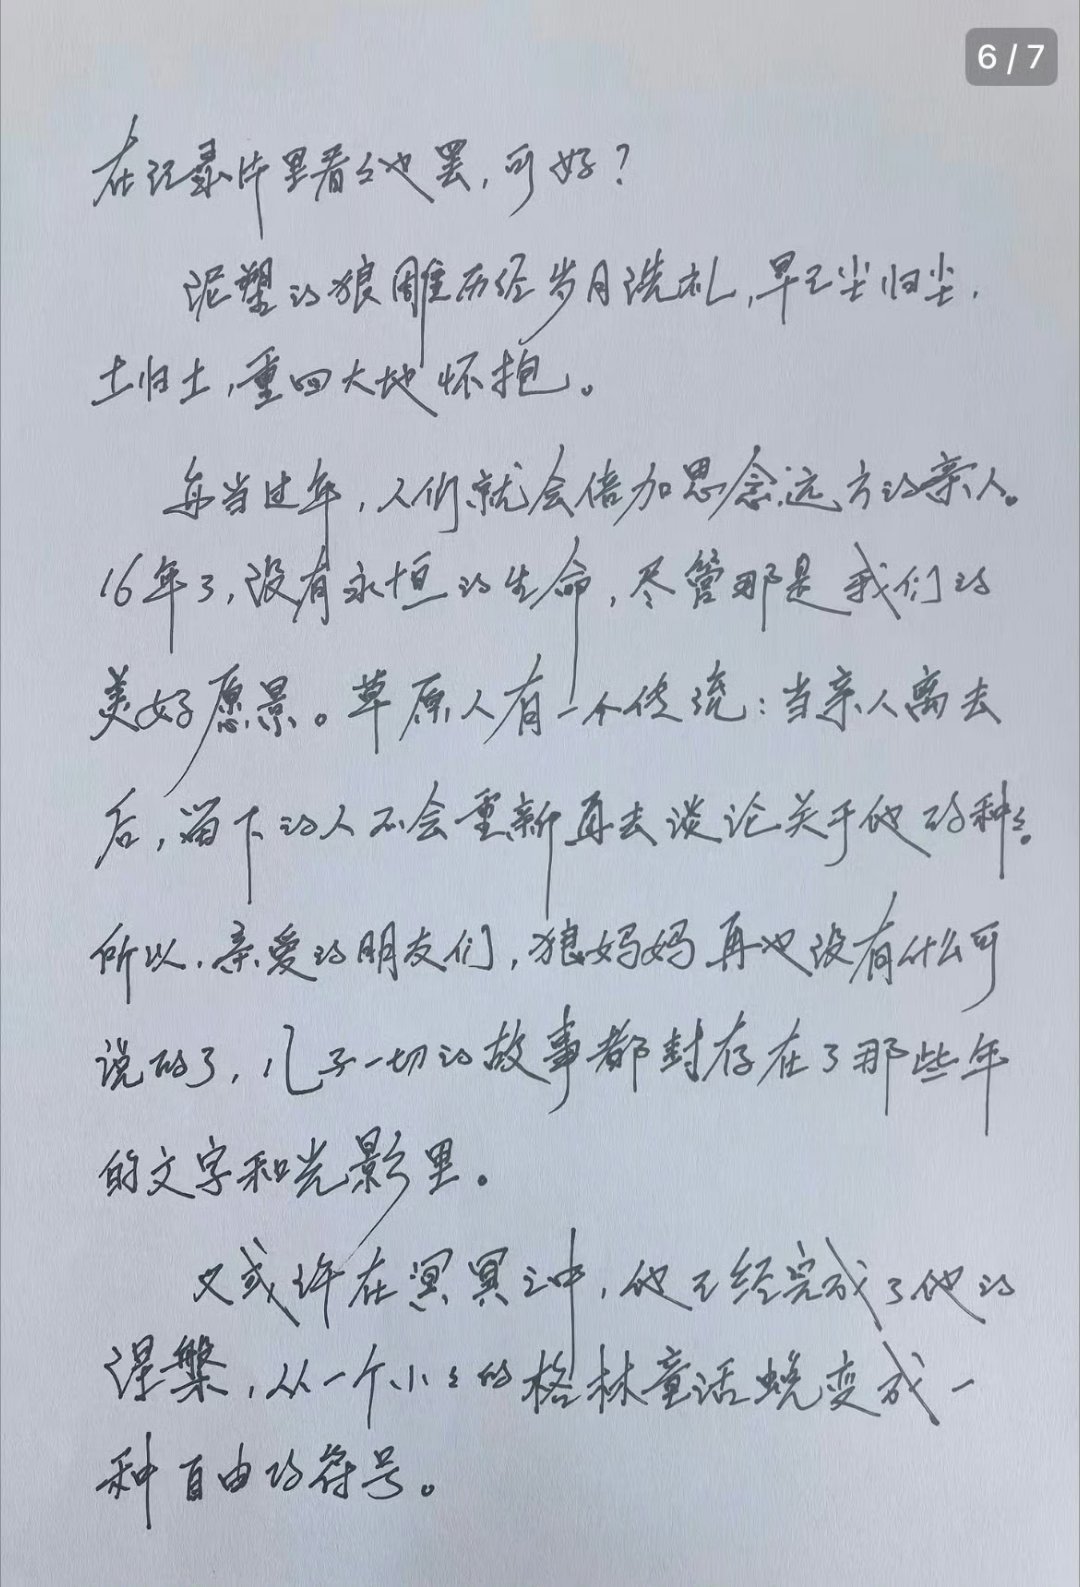 6/7
在记录片里看看他罢，可好？
泥塑的狼雕历经岁月洗礼，早已尘归尘，
土归土，重回大地怀抱。
每当过年，人们就会倍加思念远方的亲人。
16年了，没有永恒的生命，尽管那是我们的
美好愿景。草原人有一个传统：当亲人离去
后，留下的人不会重新再去谈论关于他的种种。
所以，亲爱的朋友们，狼妈妈再也没有什么可
说的了，儿子一切的故事都封存在了那些年
的文字和光影里。
又或许在冥冥之中，他已经完成了他的
涅槃，从一个小小的格林童话蜕变成一
种自由的符号。